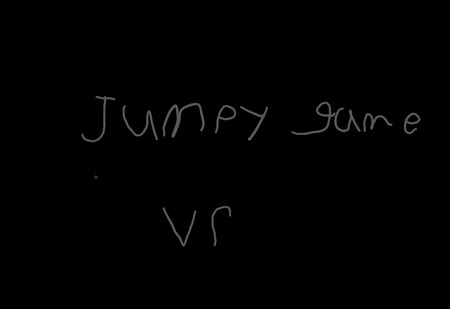 Jumpy game
vr